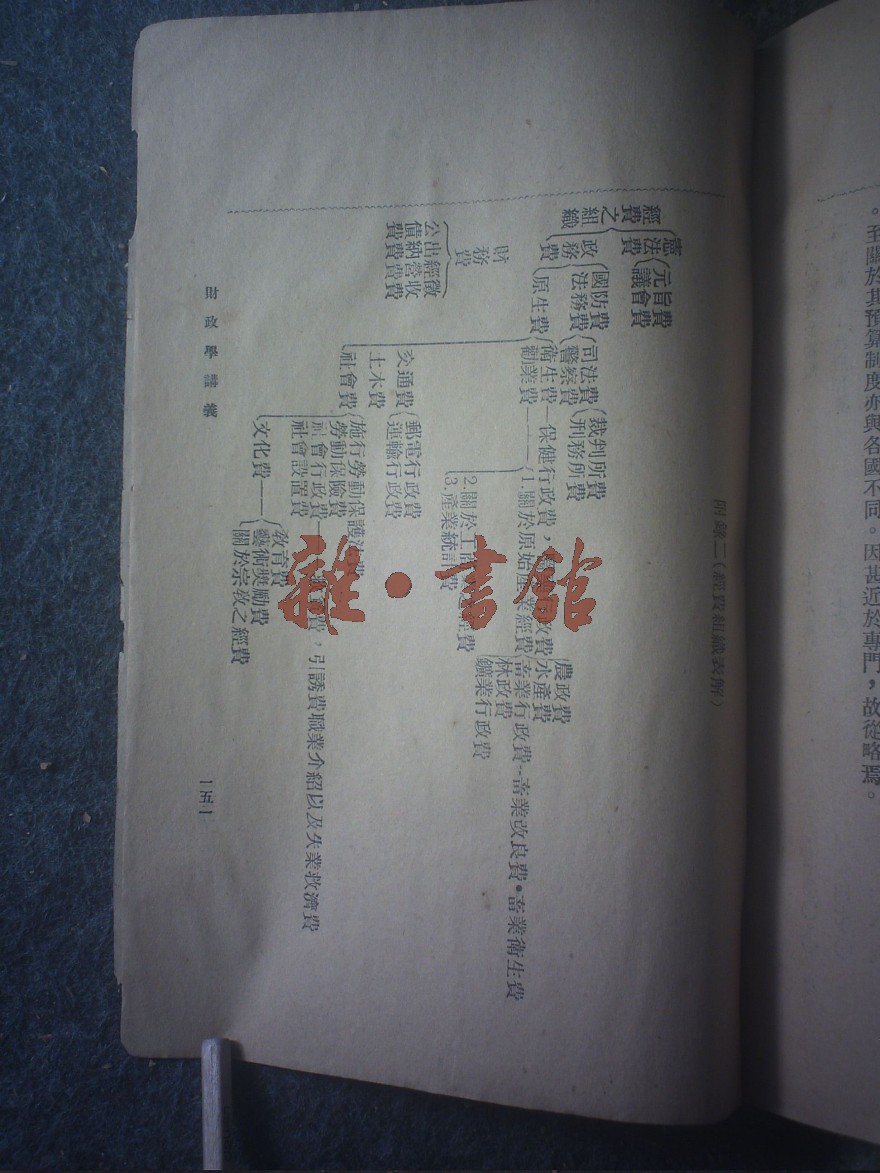 。至關於其預算制度亦與各國不同。因甚近於專門，故從略焉。
附錄二（經費組織表解）
經費之組織
憲法費
元旨費
議會費
政務費
國防費
法務費
司法費
裁判所費
刑務所費
警察費
原生費
衛生費—保健行政費，
政費
勸業費
1.關於原始產業經費
農政費
水產費
畜業行政費--畜業改良費•畜業衛生費
林政費
鑛業行政費
2.關於工
經費
3.產業統計費
交通費
郵電行政費
運輸行政費
土木費
社會費
施行勞動保護法費
勞動保險費
社會行政費
費，引誘費職業介紹以及失業救濟費
社會設置費
文化費
教育費
藝術獎勵費
關於宗教之經費
財務費
徵收費
經營費
出納費
公債費
財政學講義
一五一
雜·書館